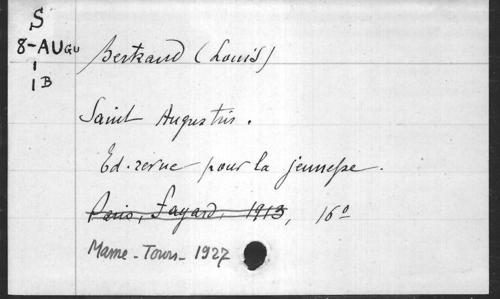 S
8-AUGU
1
1B
Bertrand (Louis)
Saint Augustin.
Ed. revue pour la jeunesse.
Paris, Fayard, 1913, 16º
Mame - Tours - 1927